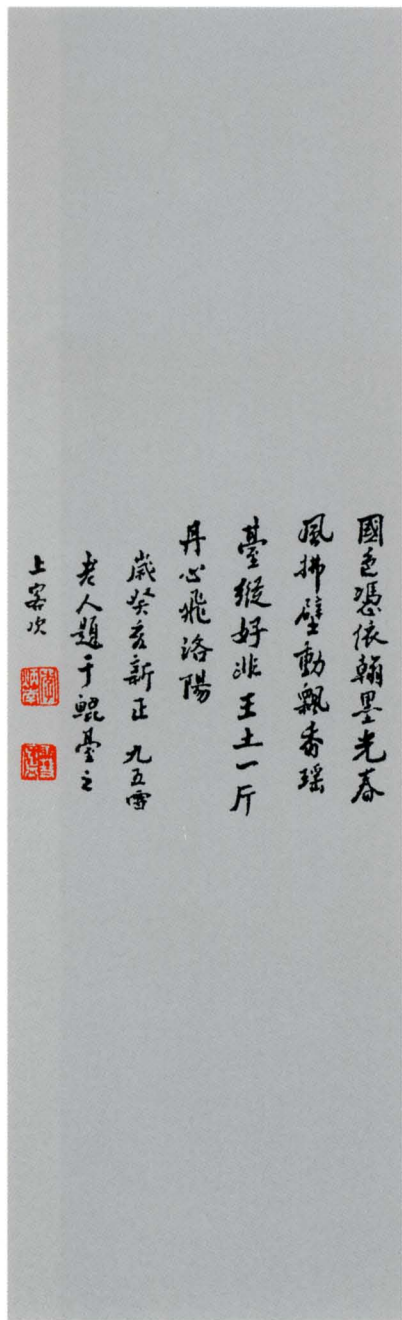 國色憑依翰墨光春
風拂壁動飄香瑤
臺縱好非王土一片
丹心飛洛陽
歲癸亥新正 九五雪
老人題于鯤臺之
上客次
李炳南